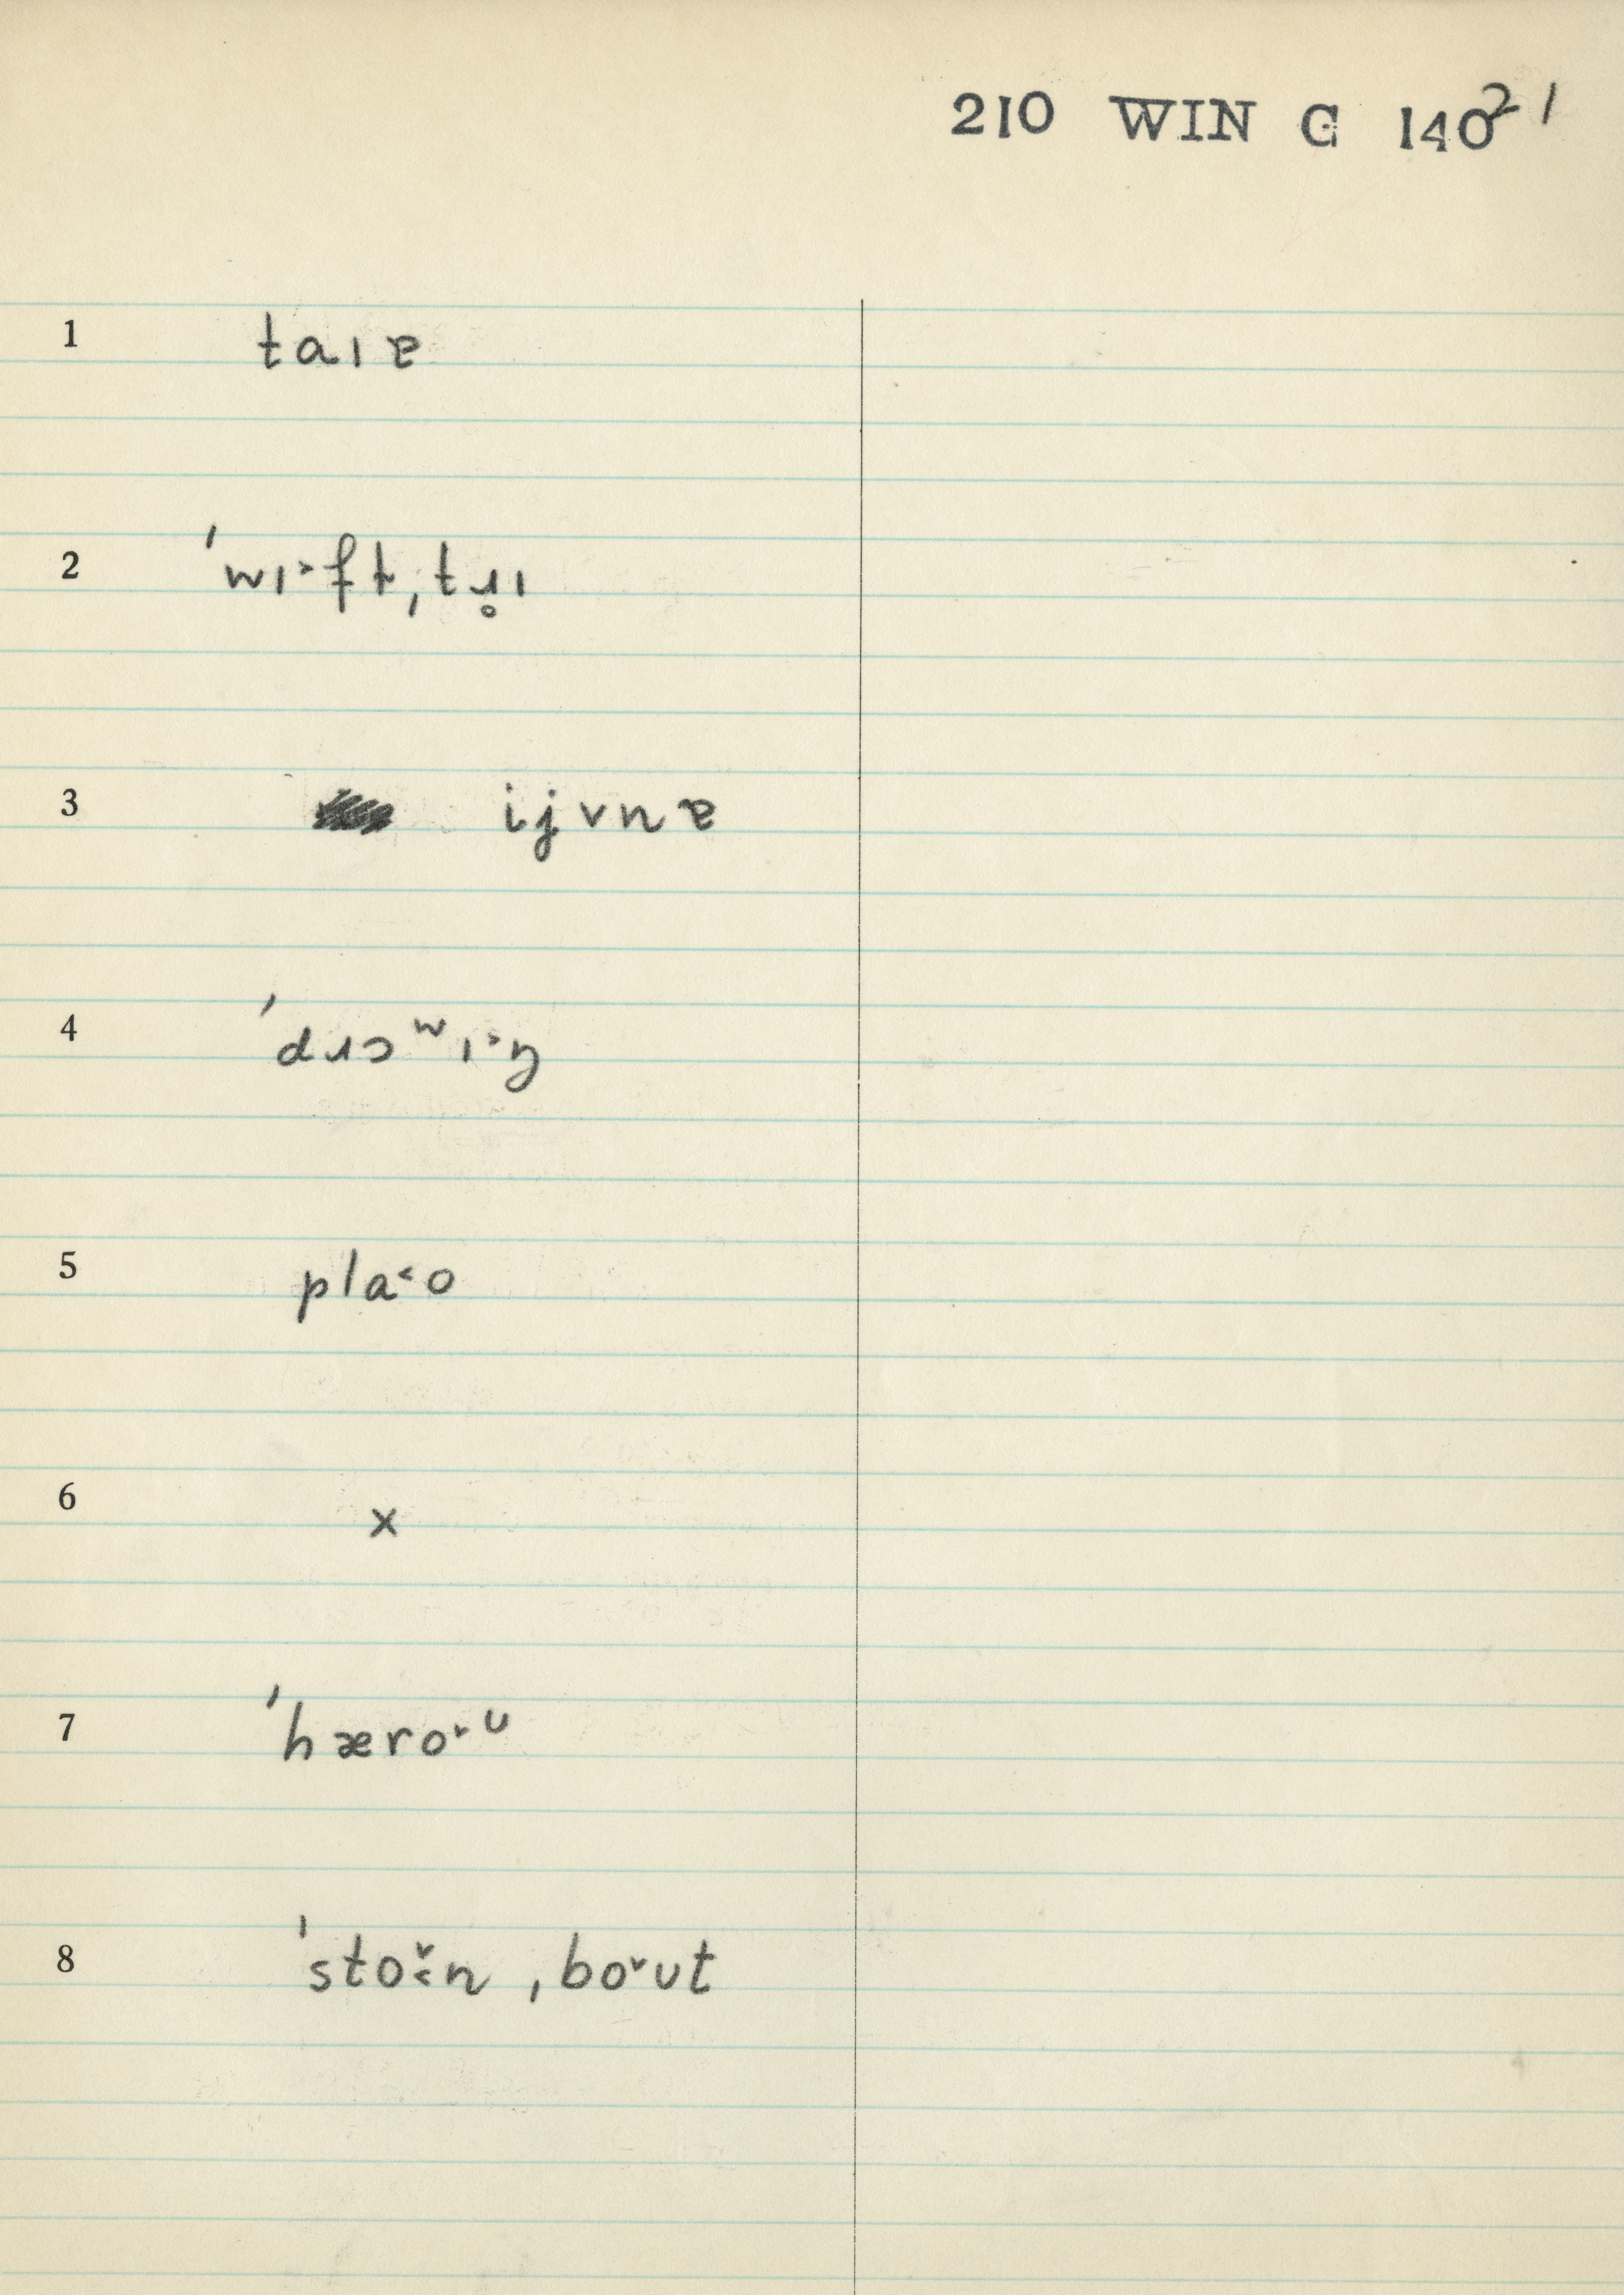 210 WIN G 140 2 1
1 taɪɐ
2 ˈwɪ˃ftˌtɹ̥ɪ
3 ijvnɐ
4 ˈdɹɔʷɪ˃ŋ
5 pla˂o
6 x
7 ˈhæro˅ᶷ
8 ˈsto˅˂n ˌbo˅ʊt